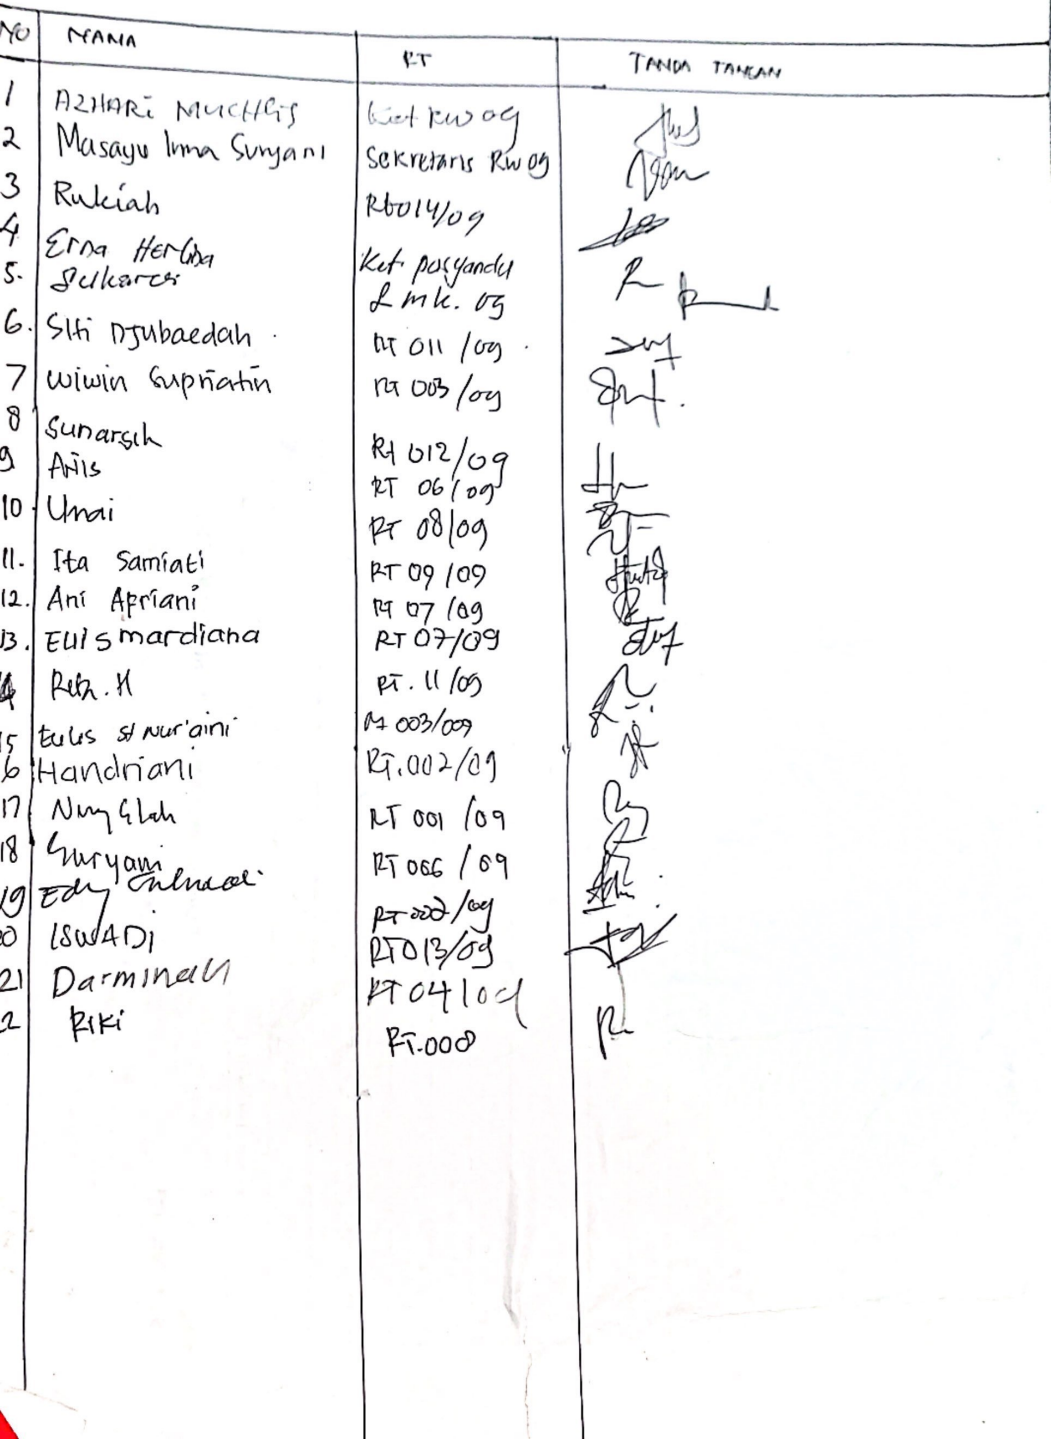 NO NAMA RT TANDA TANGAN
1 AZHARi MUCHLiS Ket RW 09
2 Masayu Irma Suryani Sekretaris RW 09
3 Rukiah Rt014/09
4 Erna Herlina Ket. posyandu
5. Sukarsi Lmk. 09
6. Siti Djubaedah RT 011/09
7 Wiwin Supriatin RT 003/09
8 Sunarsih Rt 012/09
9 Aris RT 06/09
10 Unai RT 08/09
11. Ita Samiati RT 09/09
12. Ani Apriani RT 07/09
13. Euis mardiana RT 07/09
14 H RT. 11/09
15 Euis St Nur'aini RT 003/009
6 Handriani RT.002/09
17 RT 001/09
18 Suryani RT 006/09
19 Edy RT 002/09
0 ISWADi RT013/09
21 Darminah RT 04/09
2 RiKi RT.008